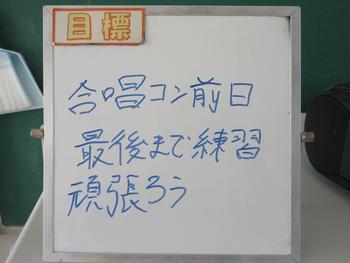 目標
合唱コン前日
最後まで練習
頑張ろう